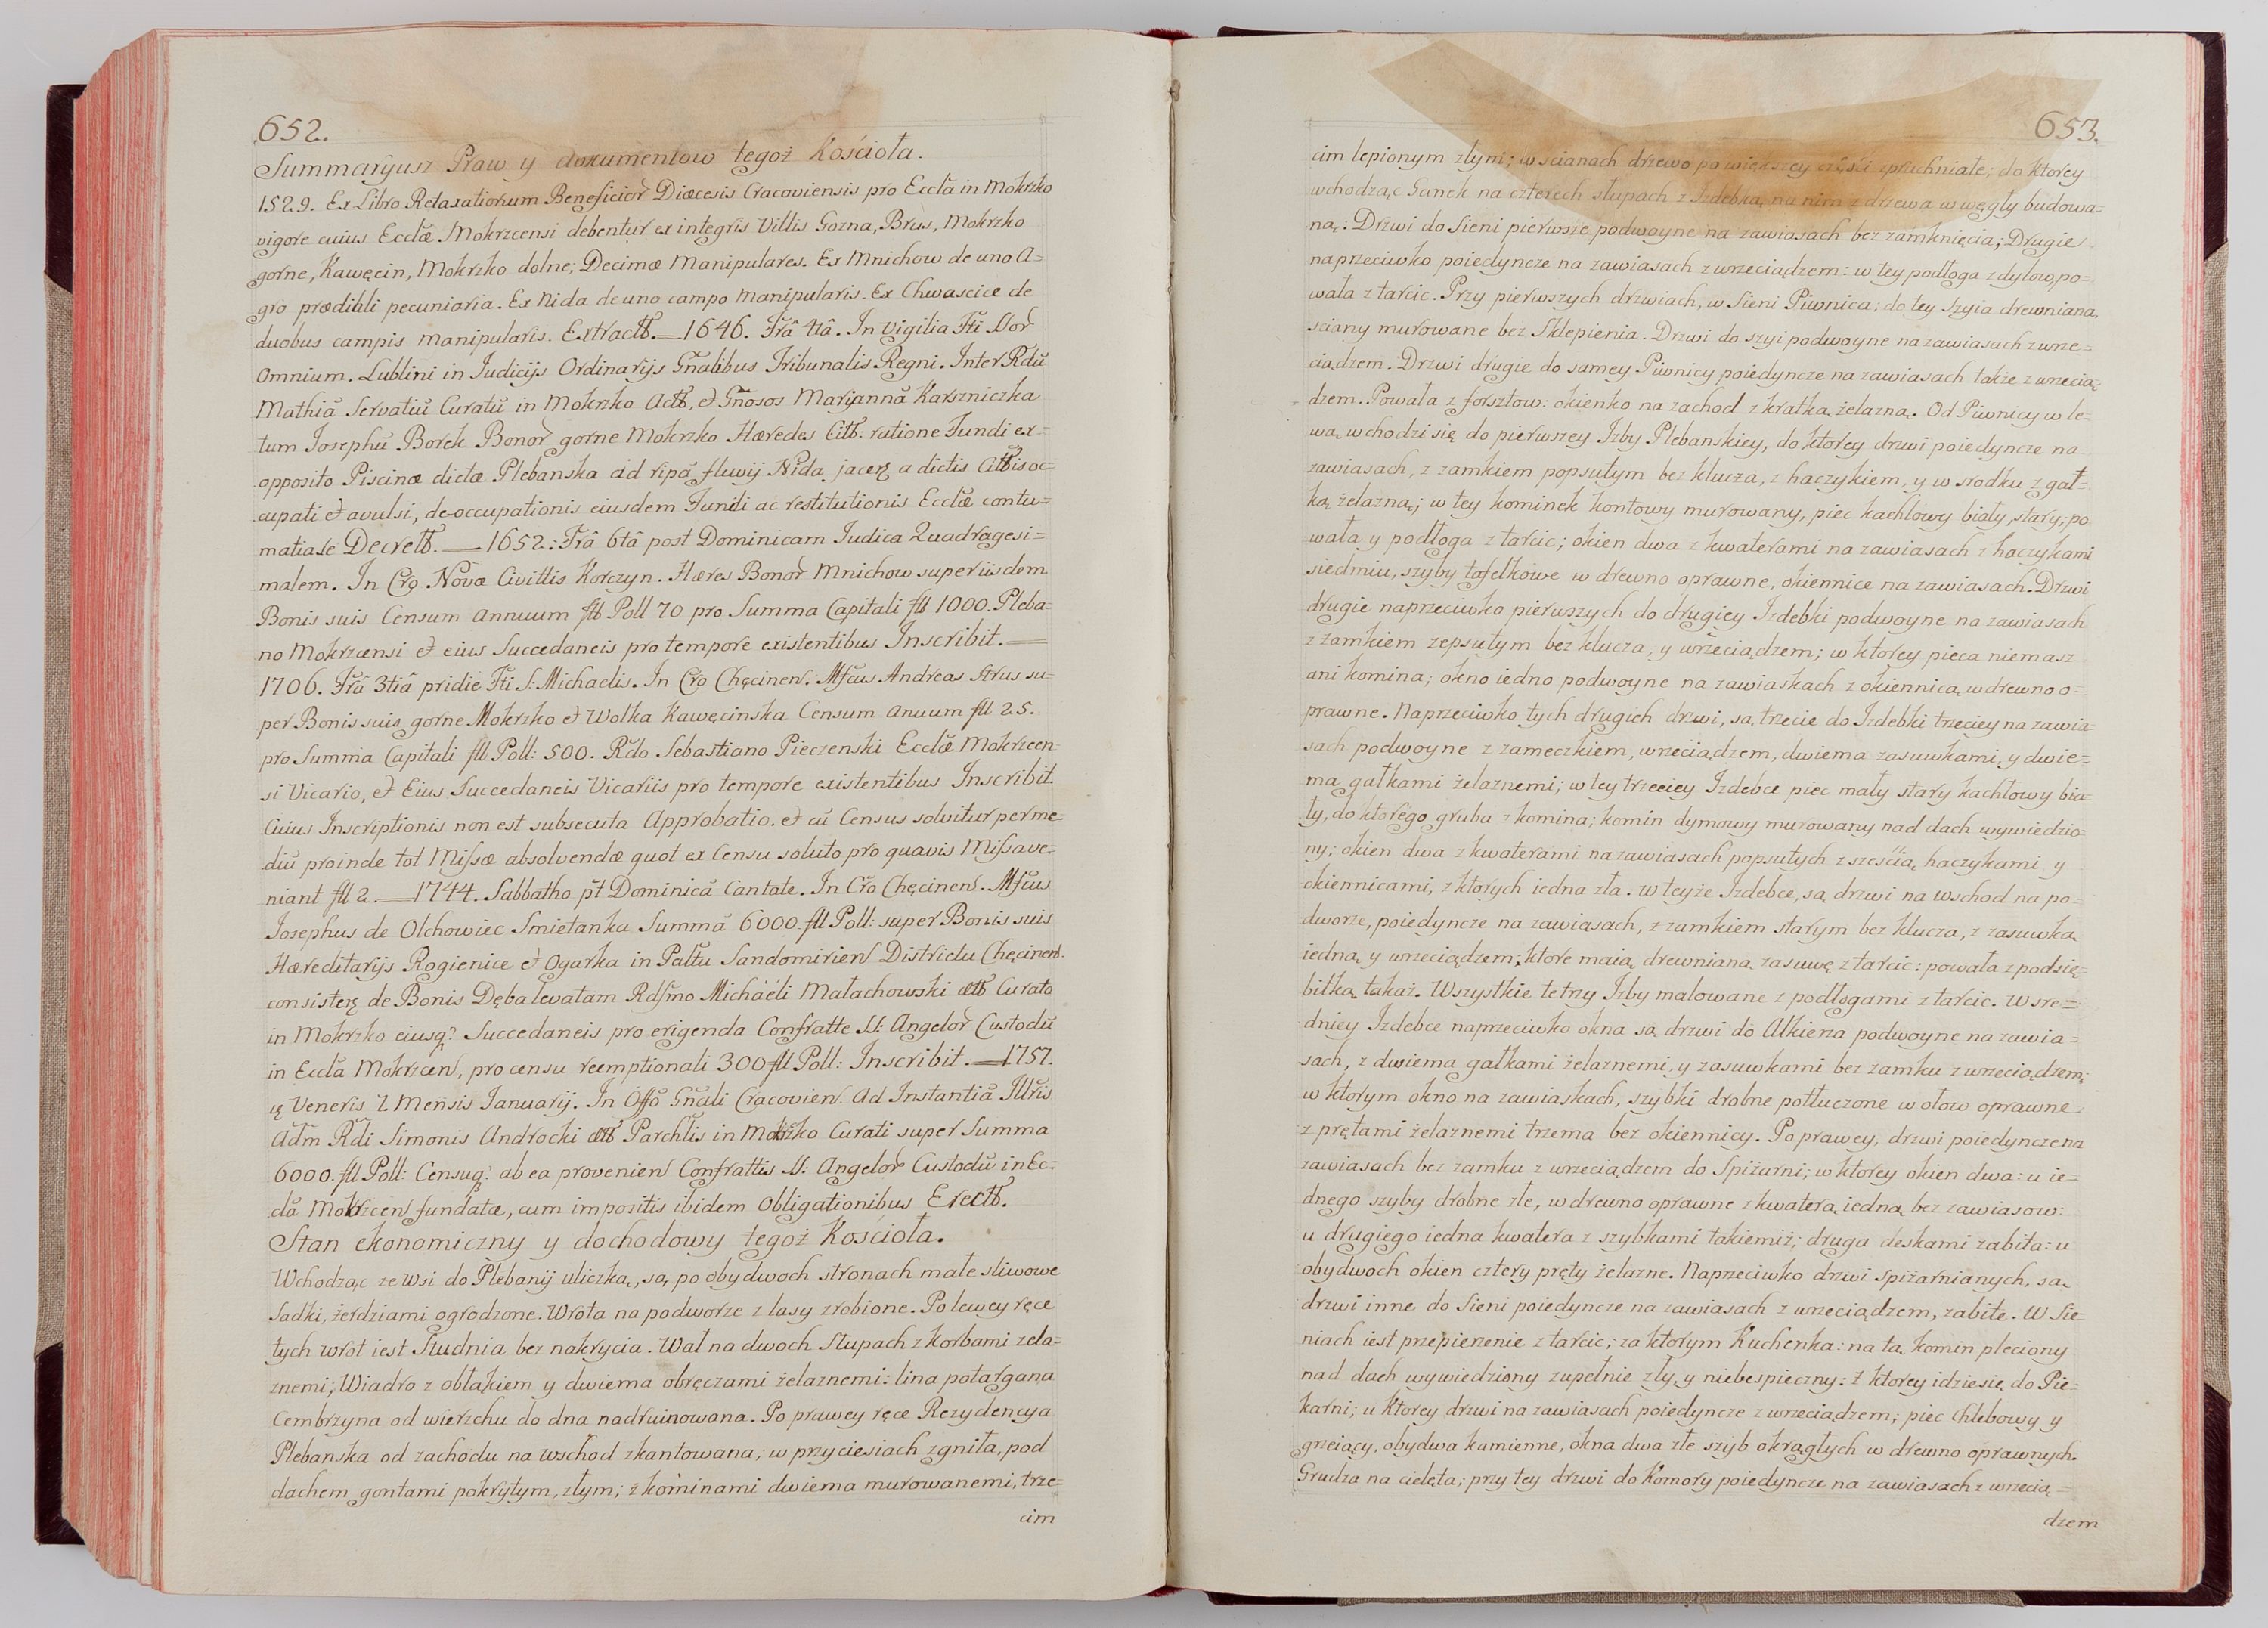 652.
Summaryusz Praw y dokumentow tegoż Kościoła.
1529. Ex Libro Retaxationum Beneficior̃ Diæcesis Cracoviensis pro Eccla in Mokrzko
vigore cuius Ecclæ Mokrzcensi debentur ex integris Villis Gozna, Brus, Mokrzko
gorne, Kawęcin, Mokrzko dolne; Decimæ Manipulares. Ex Mnichow de uno A=
gro prædiali pecuniaria. Ex Nida de uno campo manipularis. Ex Chwascice de
duobus campis manipularis. Extractt̃. — 1646. Fr̃a 4tâ. In Vigilia Ftĩ SSor̃
Omnium. Lublini in Iudicijs Ordinarijs Gñalibus Tribunalis Regni. Inter Rdũ
Mathiã Servatiũ Curatũ in Mokrzko Actt̃, et Gñosos Maryannã Karszniczka
tum Iosephũ Borek Bonor̃ gorne Mokrzko Hæredes Citt̃: ratione Fundi ex=
opposito Piscinæ dictæ Plebanska ad ripã fluvij Nida jaceñ a dictis Citt̃is oc=
cupati et avulsi, de-occupationis eiusdem Fundi ac restitutionis Ecclæ contu=
matiale Decrett̃. — 1652. Fr̃â 6tâ post Dominicam Iudica Quadragesi=
malem. In Cr̃o Novæ Civittis Korczyn. Hæres Bonor̃ Mnichow super iisdem
Bonis suis Censum annuum fll Poll 70 pro Summa Capitali fll 1000. Pleba=
no Mokrzcensi et eius Succedaneis pro tempore existentibus Inscribit. —
1706. Fr̃â 3tiâ pridie Ftĩ S: Michaelis. In Cr̃o Chęcinen. Mfcus Andreas Strus su=
per Bonis suis gorne Mokrzko et Wolka Kawęcinska Censum anuum fll 25.
pro Summa Capitali fll Poll: 500. Rdo Sebastiano Pieczenski Ecclæ Mokrzcen=
si Vicario, et Eius Succedaneis Vicariis pro tempore existentibus Inscribit.
Cuius Inscriptionis non est subsecuta Approbatio. et cũ Census solvitur per me=
diũ proinde tot Missæ absolvendæ quot ex Censu soluto pro quavis Missa ve=
niant fll 2. — 1744. Sabbatho p̃t Dominicã Cantate. In Cr̃o Chęcinen. Mfcus
Iosephus de Olchowiec Smietanka Summã 6000. fll Poll: super Bonis suis
Hæreditarijs Rogienice et Ogarka in Paltũ Sandomirien Districtu Chęcinen.
consisteñ de Bonis Dęba levatam Rdsmo Michaeli Małachowski Curato
in Mokrzko eiusq̃ Succedaneis pro erigenda Confratte SS: Angelor̃ Custodũ
in Eccla Mokrzcen, pro censu reemptionali 300 fll Poll: Inscribit. — 1757.
Veneris 7. Mensis Ianuarij. In Offõ Gñali Cracovien. Ad Instantiã Illr̃is
Adm̃ Rdi Simonis Androcki Parchlis in Mokrzko Curati super Summa
6000. fll Poll: Censuq̃: ab ea provenien Confrattis SS: Angelor̃ Custodũ in Ec=
cla Mokrzcen fundatæ, cum impositis ibidem Obligationibus Erectt̃.
Stan ekonomiczny y dochodowy tegoż Kościoła.
Wchodząc ze Wsi do Plebanij uliczką, są po obydwoch stronach małe sliwowe
Sadki, żerdziami ogrodzone. Wrota na podworze z lasy zrobione. Po lewey ręce
tych wrot iest Studnia bez nakrycia. Wał na dwoch Słupach z korbami zela=
znemi; Wiadro z obłąkiem y dwiema obręczami żelaznemi: lina potargana
Cembrzyna od wierzchu do dna nadruinowana. Po prawey ręce Rezydencya
Plebanska od zachodu na wschod zkantowana; w przyciesiach zgniła, pod
dachem gontami pokrytym, złym; z kominami dwiema murowanemi, trze=
cim
653.
cim lepionym złym; w scianach drzewo po większey części spruchniałe; do ktorey
wchodząc Ganek na czterech słupach z Izdebką na nim z drzewa w węgły budowa=
ną: Drzwi do Sieni pierwsze podwoyne na zawiasach bez zamknięcia; Drugie
naprzeciwko poiedyncze na zawiasach z wrzeciądzem: w tey podłoga z dylow, po=
wała z tarcic. Przy pierwszych drzwiach, w Sieni Piwnica; do tey Szyia drewniana,
sciany murowane bez Sklepienia. Drzwi do szyi podwoyne na zawiasach z wrze=
ciądzem. Drzwi drugie do samey Piwnicy poiedyncze na zawiasach także z wrzecią=
dzem. Powała z forsztow: okienko na zachod z kratką żelazną. Od Piwnicy w le=
wą wchodzi się do pierwszey Izby Plebanskiey, do ktorey drzwi poiedyncze na
zawiasach, z zamkiem popsutym bez klucza, z haczykiem, y w srodku z gał=
ką żelazną; w tey kominek kontowy murowany, piec kachlowy biały, stary; po
wała y podłoga z tarcic; okien dwa z kwaterami na zawiasach z haczykami
siedmiu, szyby tafelkowe w drewno oprawne, okiennice na zawiasach. Drzwi
drugie naprzeciwko pierwszych do drugiey Izdebki podwoyne na zawiasach
z zamkiem zepsutym bez klucza, y wrzeciądzem; w ktorey pieca niemasz
ani komina; okno iedno podwoyne na zawiaskach z okiennicą w drewno o=
prawne. Naprzeciwko tych drugich drzwi, są trzecie do Izdebki trzeciey na zawia=
sach podwoyne z zameczkiem, wrzeciądzem, dwiema zasuwkami, y dwie=
ma gałkami żelaznemi; w tey trzeciey Izdebce piec mały stary kachlowy bia=
ły, do ktorego gruba z komina; komin dymowy murowany nad dach wywiedzio=
ny; okien dwa z kwaterami na zawiasach popsutych z sześcią haczykami y
okiennicami, z ktorych iedna zła. W teyże Izdebce, są drzwi na wschod na po=
dworze, poiedyncze na zawiasach, z zamkiem starym bez klucza, z zasuwką
iedną y wrzeciądzem; ktore maią drewnianą zasuwę z tarcic: powała z podsię=
bitką takaż. Wszystkie te trzy Izby malowane z podłogami z tarcic. W sre=
dniey Izdebce naprzeciwko okna są drzwi do Alkierza podwoyne na zawia=
sach, z dwiema gałkami żelaznemi, y zasuwkami bez zamku z wrzeciądzem;
w ktorym okno na zawiaskach, szybki drobne potłuczone w ołow oprawne
z prętami żelaznemi trzema bez okiennicy. Po prawey, drzwi poiedyncze na
zawiasach bez zamku z wrzeciądzem do Spiżarni; w ktorey okien dwa: u ie=
dnego szyby drobne złe, w drewno oprawne z kwaterą iedną bez zawiasow:
u drugiego iedna kwatera z szybkami takiemiż; druga deskami zabita: u
obydwoch okien cztery pręty żelazne. Naprzeciwko drzwi Spiżarnianych, są
drzwi inne do Sieni poiedyncze na zawiasach z wrzeciądzem, zabite. W Sie=
niach iest przepierzenie z tarcic; za ktorym Kuchenka: na tą komin pleciony
nad dach wywiedziony zupełnie zły, y niebespieczny: z ktorey idzie się do Pie=
karni; u ktorey drzwi na zawiasach poiedyncze z wrzeciądzem; piec Chlebowy y
grzeiący, obydwa kamienne, okna dwa złe szyb okrągłych w drewno oprawnych.
Grudza na cielęta; przy tey drzwi do Komory poiedyncze na zawiasach z wrzecią=
dzem